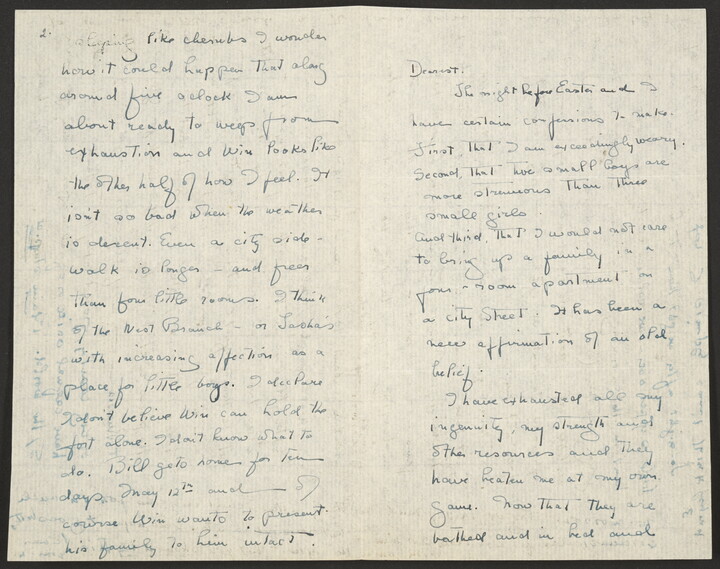 Dearest:
The night before Easter and I
have certain confessions to make.
First, that I am exceedingly weary.
Second, that two small boys are
more strenuous than three
small girls.
And third, that I would not care
to bring up a family in a
four-room apartment on
a city street. It has been a
new affirmation of an old
belief.
I have exhausted all my
ingenuity, my strength and
other resources and they
have beaten me at my own
game. Now that they are
bathed and in bed and
2.
sleeping like cherubs I wonder
how it could happen that along
around five oclock I am
about ready to weep from
exhaustion and Win looks like
the other half of how I feel. It
isn't so bad when the weather
is decent. Even a city side-
walk is longer - and freer
than four little rooms. I think
of the West Branch - or
with increasing affection as a
place for little boys. I declare
I don't believe Win can hold the
fort alone. I don't know what to
do. Bill gets home for ten
days, May 12th and of
course Win wants to present
his family to him intact.